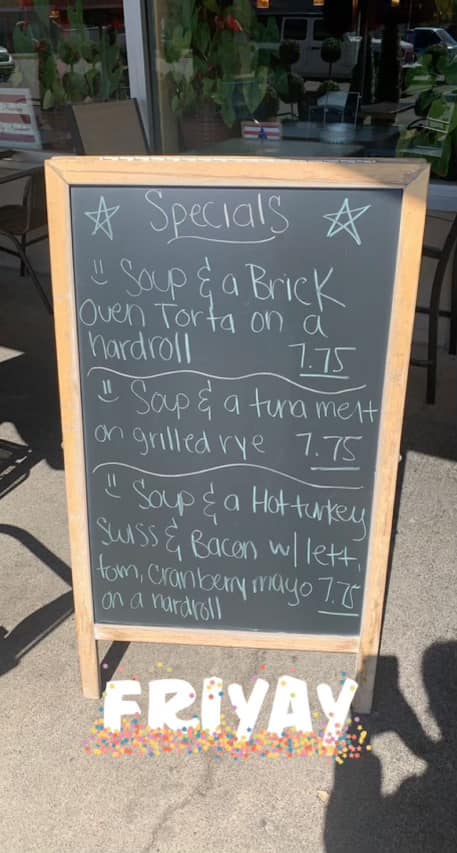 Specials
Soup & a Brick
oven Torta on a
hardroll 7.75
Soup & a tuna melt
on grilled rye 7.75
Soup & a Hot turkey
Swiss & Bacon w/ lett,
tom, cranberry mayo 7.75
on a hardroll
FRIYAY